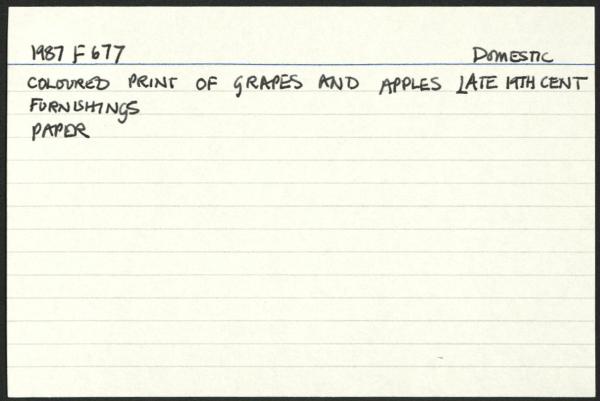 1987 F 677 DOMESTIC
COLOURED PRINT OF GRAPES AND APPLES LATE 19TH CENT
FURNISHINGS
PAPER